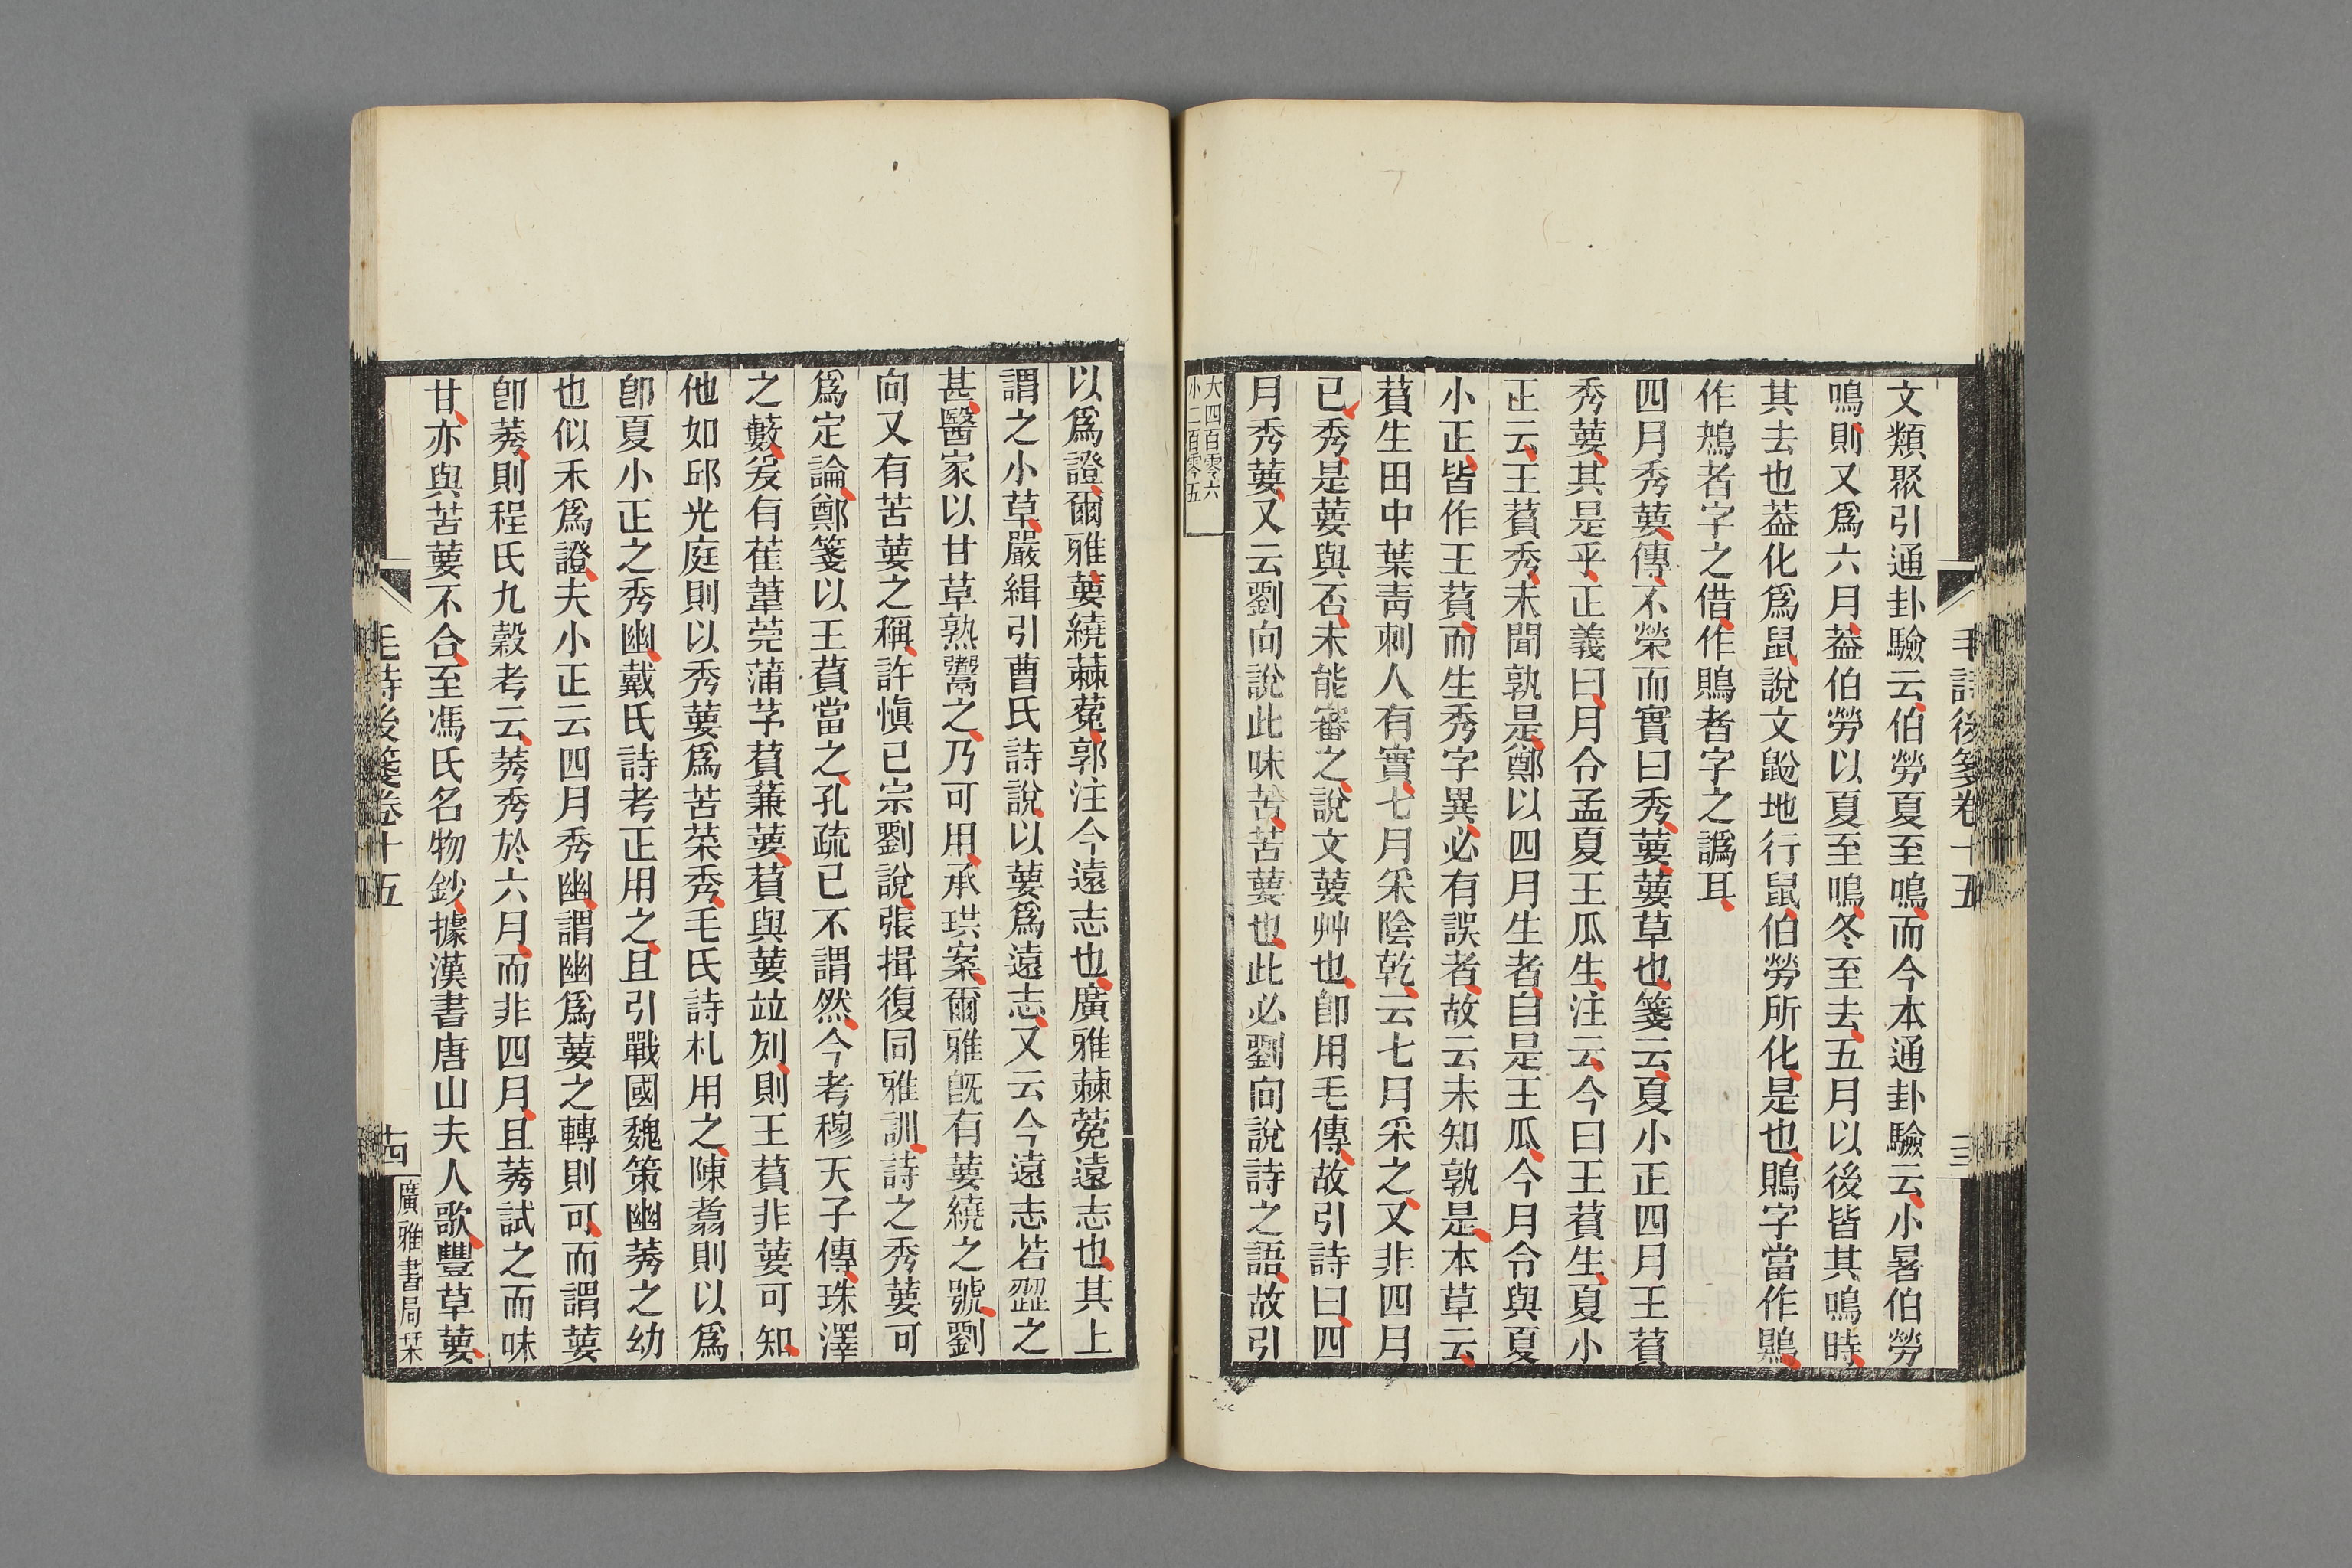 毛詩後箋卷十五
三
文類聚引通卦驗云伯勞夏至鳴而今本通卦驗云小暑伯勞
鳴則又爲六月葢伯勞以夏至鳴冬至去五月以後皆其鳴時
其去也葢化爲鼠說文鼢地行鼠伯勞所化是也鵙字當作鶪
作鴂者字之借作鵙者字之譌耳
四月秀葽傳不榮而實曰秀葽葽草也箋云夏小正四月王萯
秀葽其是乎正義曰月令孟夏王瓜生注云今曰王萯生夏小
正云王萯秀未聞孰是鄭以四月生者自是王瓜今月令與夏
小正皆作王萯而生秀字異必有誤者故云未知孰是本草云
萯生田中葉靑刺人有實七月采陰乾云七月采之又非四月
已秀是葽與否未能審之說文葽艸也卽用毛傳故引詩曰四
月秀葽又云劉向說此味苦苦葽也此必劉向說詩之語故引
大四百零六
小二百零五
以爲證爾雅葽繞蕀蒬郭注今遠志也廣雅蕀菀遠志也其上
謂之小草嚴緝引曹氏詩說以葽爲遠志又云今遠志若澀之
甚醫家以甘草熟鬻之乃可用承珙案爾雅旣有葽繞之號劉
向又有苦葽之稱許愼已宗劉說張揖復同雅訓詩之秀葽可
爲定論鄭箋以王萯當之孔疏已不謂然今考穆天子傳珠澤
之藪爰有萑葦莞蒲茅萯蒹葽萯與葽竝列則王萯非葽可知
他如邱光庭則以秀葽爲苦菜秀毛氏詩札用之陳翥則以爲
卽夏小正之秀幽戴氏詩考正用之且引戰國魏策幽莠之幼
也似禾爲證夫小正云四月秀幽謂幽爲葽之轉則可而謂葽
卽莠則程氏九穀考云莠秀於六月而非四月且莠試之而味
甘亦與苦葽不合至馮氏名物鈔據漢書唐山夫人歌豐草葽
毛詩後箋卷十五
十四
廣雅書局栞